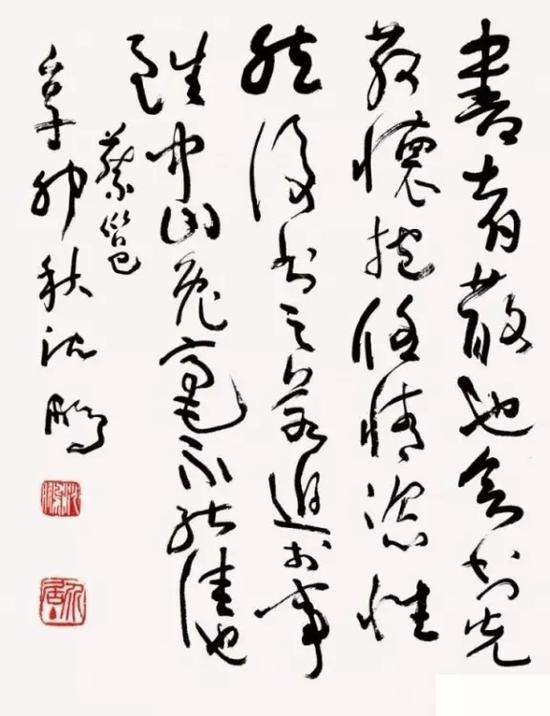 書者散也欲書先
散懷抱任情恣性
然後書之若迫於事
雖中山兔毫不能佳也
蔡邕
辛卯秋沈鵬
沈鵬